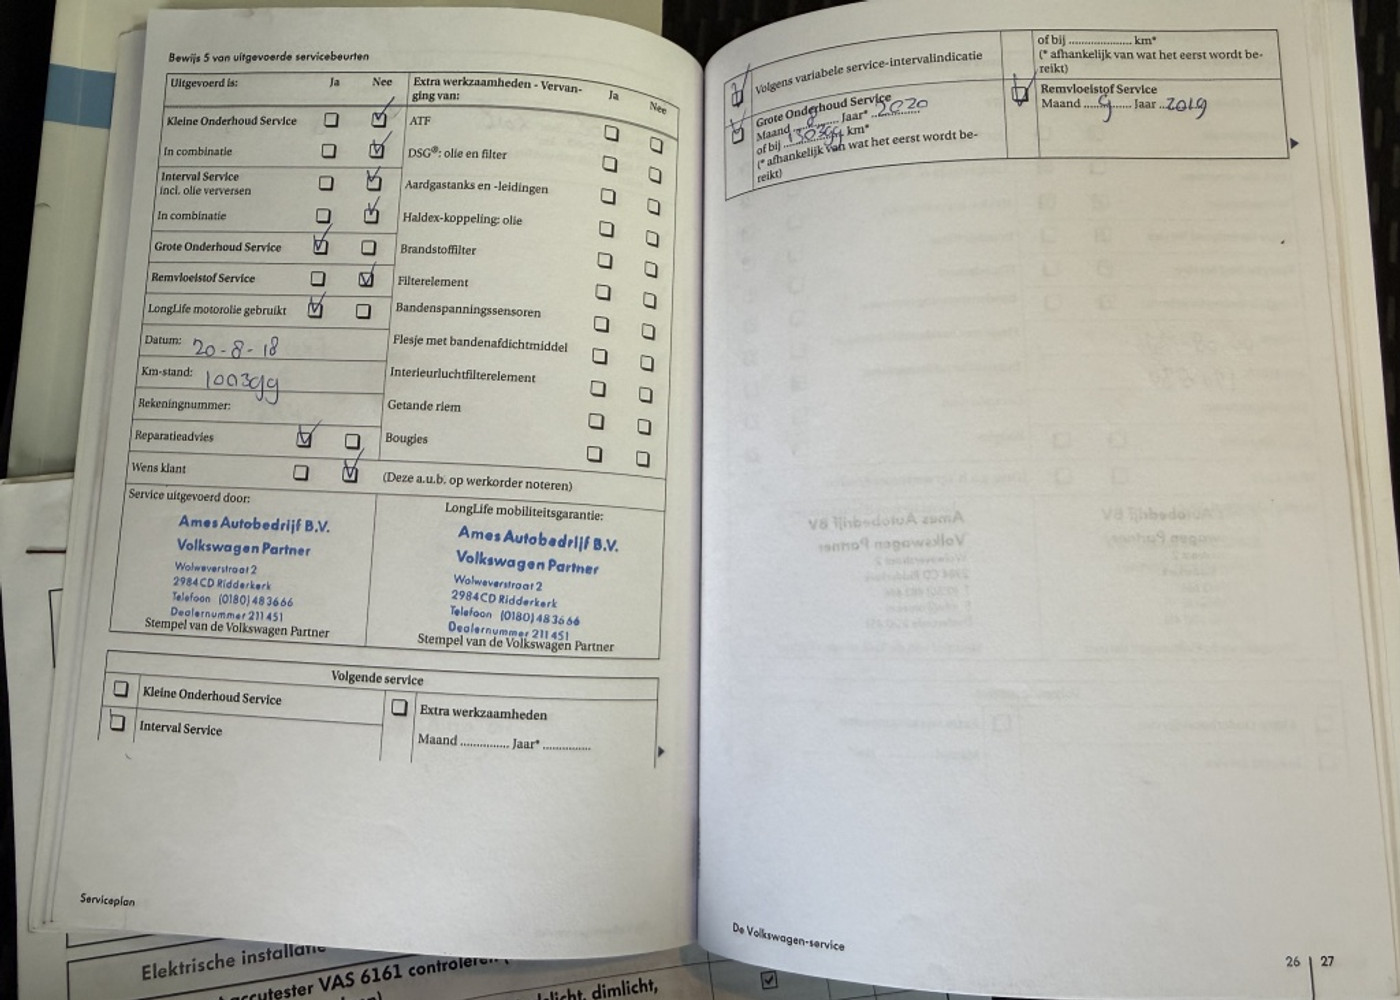 Bewijs 5 van uitgevoerde servicebeurten
Uitgevoerd is: Ja Nee
Kleine Onderhoud Service
In combinatie
Interval Service
incl. olie verversen
In combinatie
Grote Onderhoud Service
Remvloeistof Service
LongLife motorolie gebruikt
Datum: 20-8-18
Km-stand: 100399
Rekeningnummer:
Reparatieadvies
Wens klant
Extra werkzaamheden - Vervan-
ging van: Ja Nee
ATF
DSG®: olie en filter
Aardgastanks en -leidingen
Haldex-koppeling: olie
Brandstoffilter
Filterelement
Bandenspanningssensoren
Flesje met bandenafdichtmiddel
Interieurluchtfilterelement
Getande riem
Bougies
(Deze a.u.b. op werkorder noteren)
Service uitgevoerd door:
Ames Autobedrijf B.V.
Volkswagen Partner
Wolweverstraat 2
2984CD Ridderkerk
Telefoon (0180) 483666
Dealernummer 211451
Stempel van de Volkswagen Partner
LongLife mobiliteitsgarantie:
Ames Autobedrijf B.V.
Volkswagen Partner
Wolweverstraat 2
2984CD Ridderkerk
Telefoon (0180) 483666
Dealernummer 211451
Stempel van de Volkswagen Partner
Volgende service
Kleine Onderhoud Service
Interval Service
Extra werkzaamheden
Maand ............... Jaar* ...............
Serviceplan
Volgens variabele service-intervalindicatie
Grote Onderhoud Service
Maand 8 Jaar* 2020
of bij 130399 km*
(* afhankelijk van wat het eerst wordt be-
reikt)
of bij .................... km*
(* afhankelijk van wat het eerst wordt be-
reikt)
Remvloeistof Service
Maand 9 Jaar 2019
De Volkswagen-service
26 | 27
Elektrische installatie
accutester VAS 6161 controleren
dimlicht,